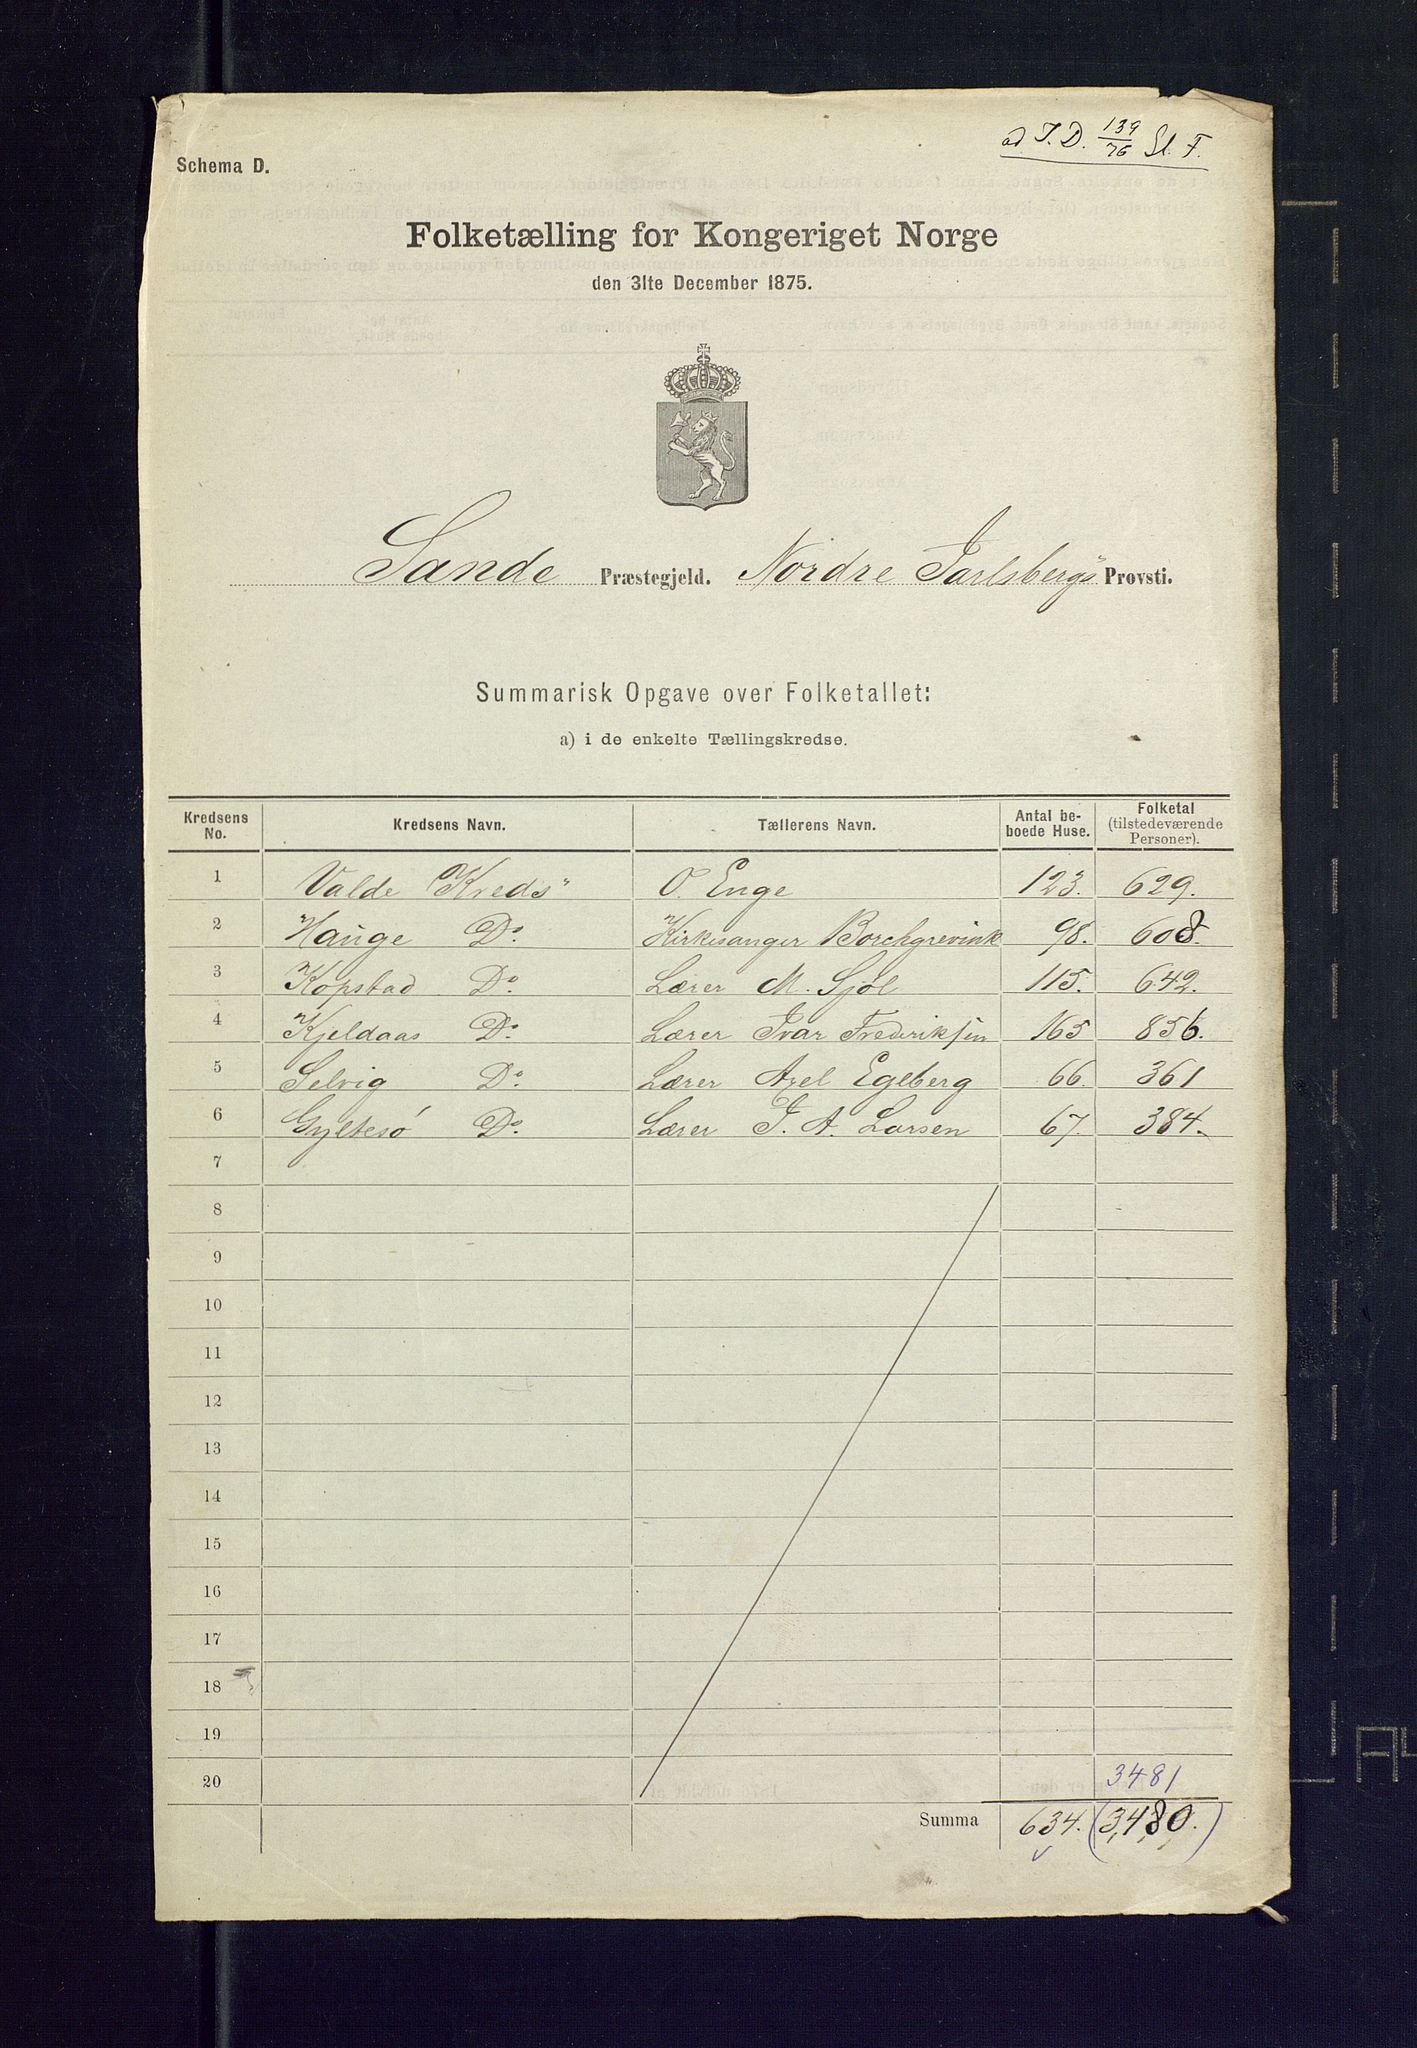 ad J. D. 139/76 Sl. F.
Schema D.
Folketælling for Kongeriget Norge
den 31te December 1875.
Sande Præstegjeld. Nordre Jarlsbergs Provsti.
Summarisk Opgave over Folketallet:
a) i de enkelte Tællingskredse.
Kredsens No. Kredsens Navn. Tællerens Navn. Antal beboede Huse. Folketal (tilstedeværende Personer).
1 Valde Kreds O. Enge 123. 629.
2 Hauge Do. Kirkesanger Borchgrevink 98. 608.
3 Kopstad Do. Lærer M. Sjöl 115. 642.
4 Kjeldaas Do. Lærer Ivar Frederiksen 165 856.
5 Selvig Do. Lærer Axel Egeberg 66. 361
6 Gyltesö Do. Lærer J. A. Larsen 67. 384.
7
8
9
10
11
12
13
14
15
16
17
18
19
20 3481
Summa 634. (3,480.)